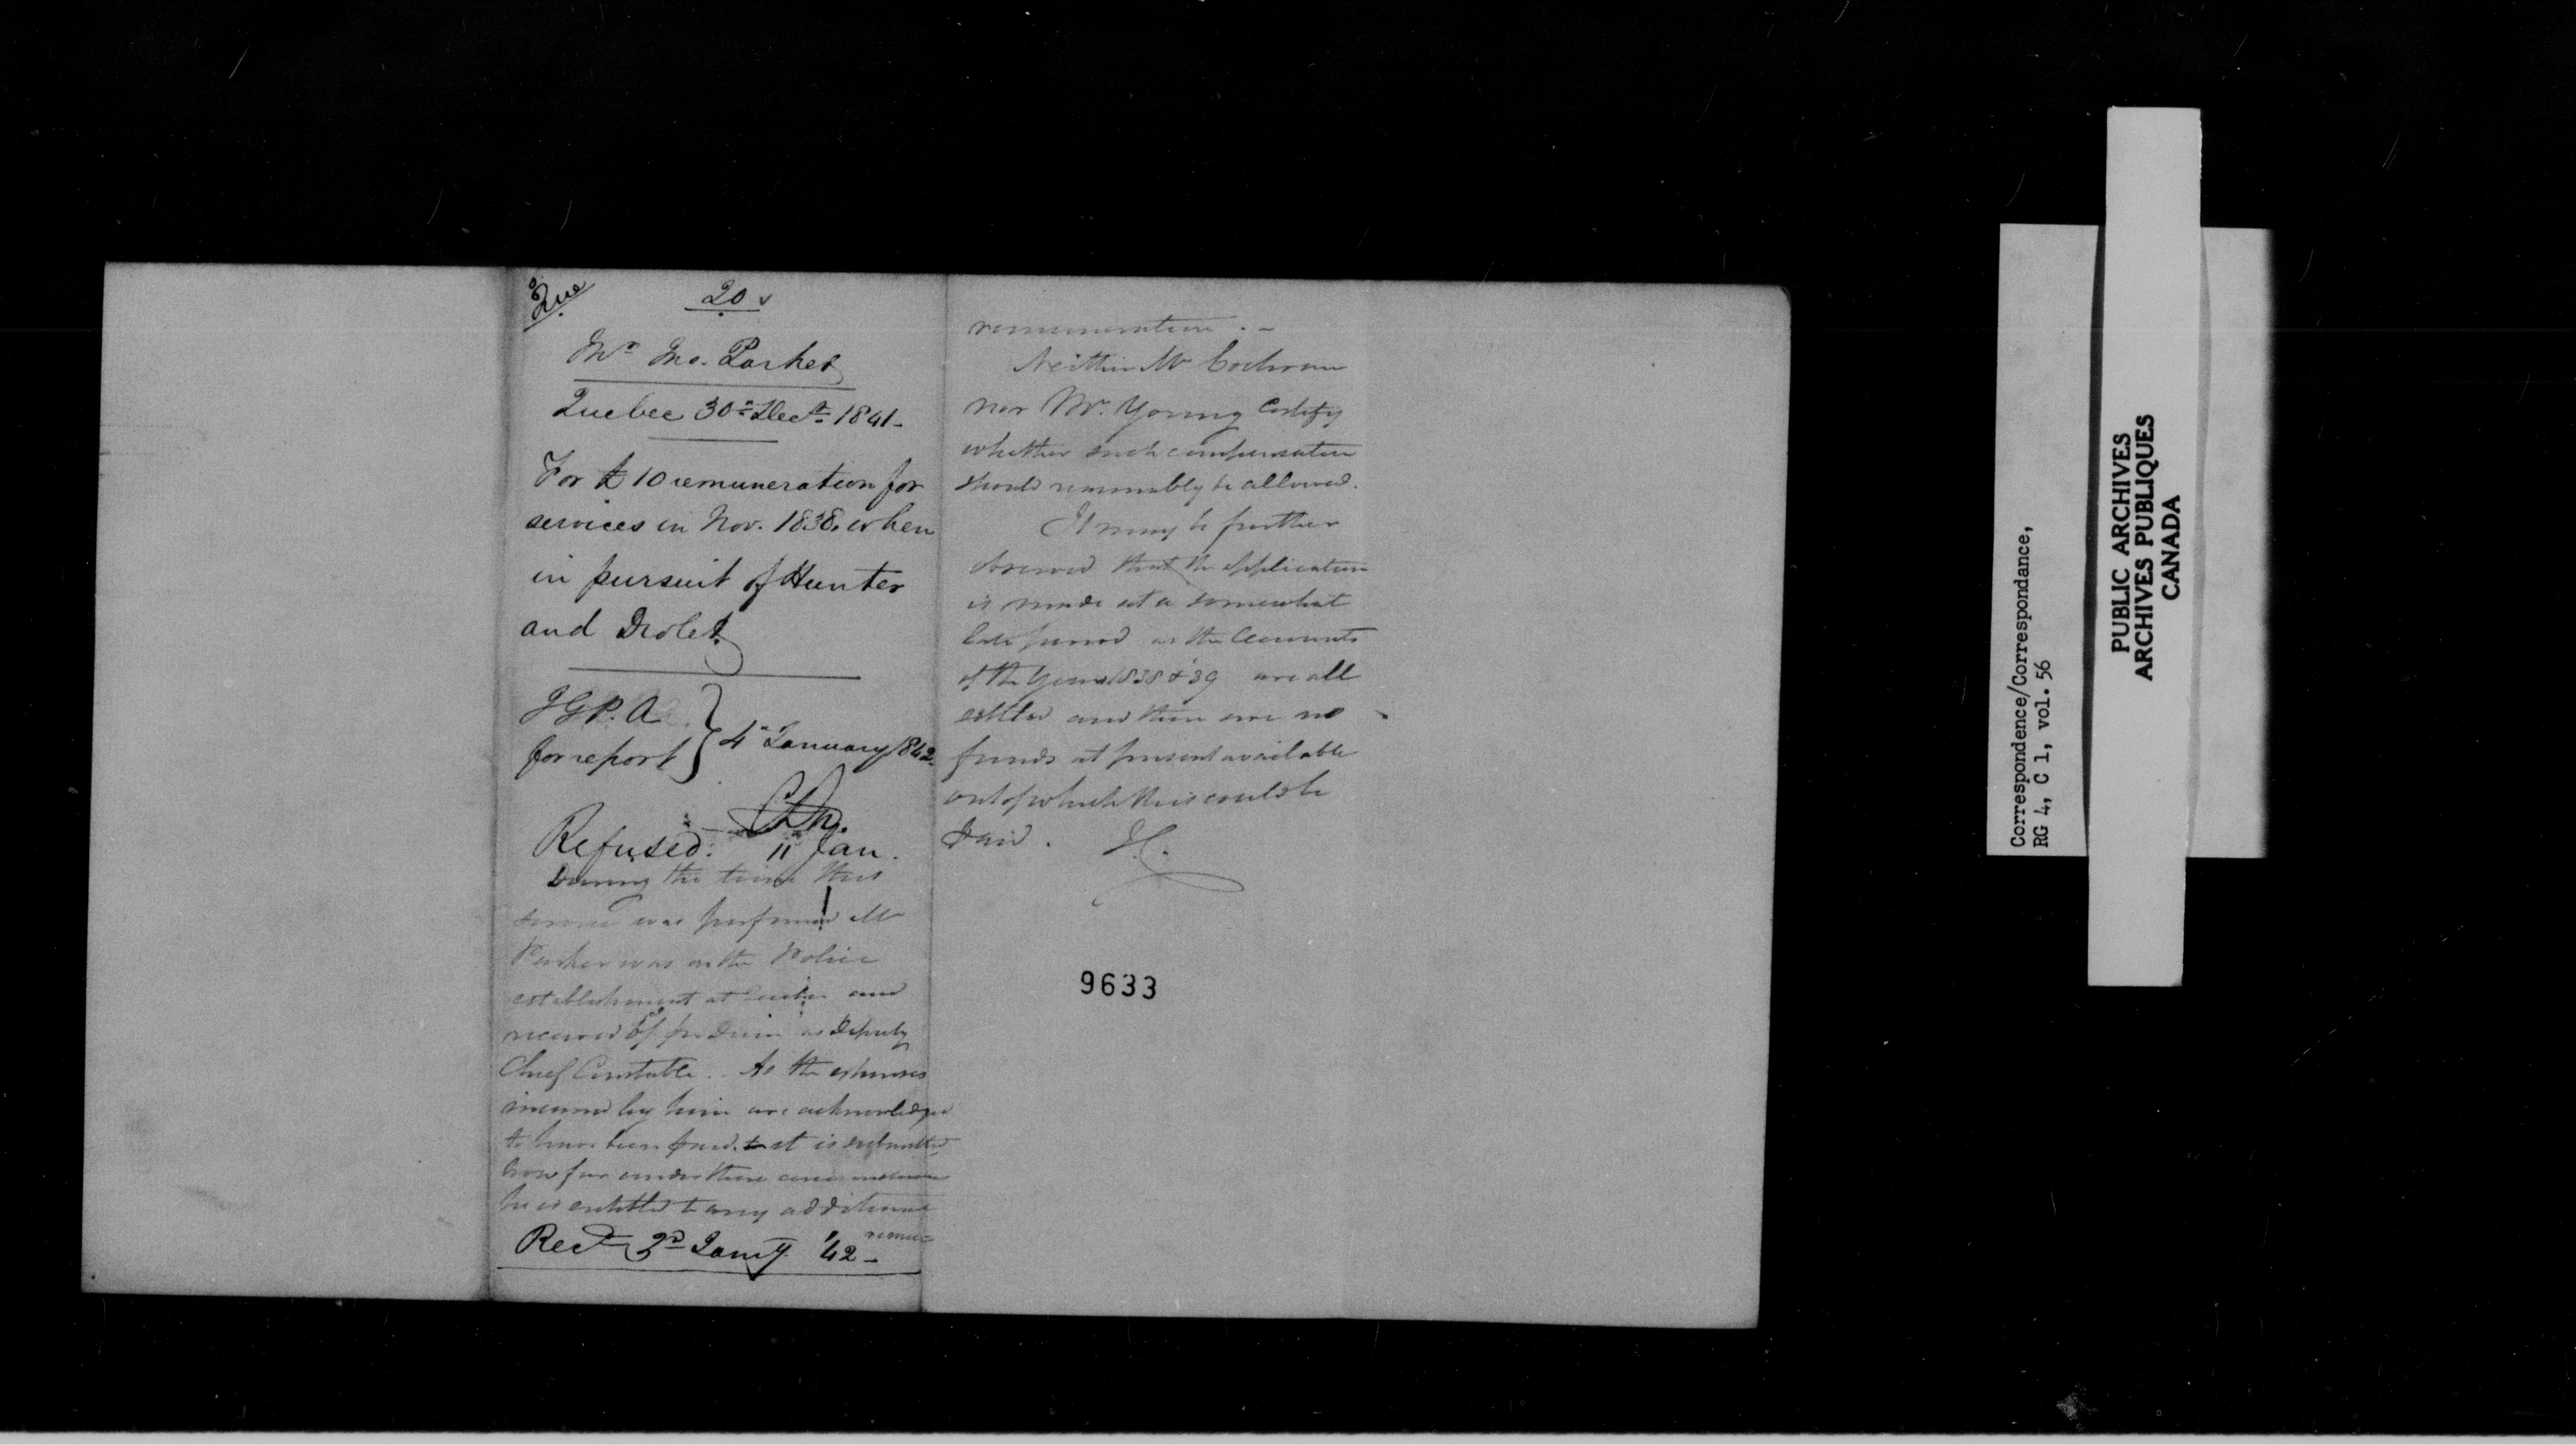 Que
20
Mr Jno. Parker
Quebec 30th Decr. 1841-
For £10 remuneration for
services in Nov. 1838, when
in pursuit of Hunter
and Drolet
I G P. A
for report } 4th January 1842
Refused. 11 Jan.
During the time this
service was performed Mr
Parker was on the Police
establishment at Quebec and
received per diem as Deputy
Chief Constable. As the expenses
incurred by him are acknowledged
to have been paid, it is submitted
how far under these circumstances
he is entitled to any additional
remu=
Recd 3d Jany '42-
remuneration.-
Neither Mr Cochran
nor Mr. Young certify
whether such compensation
should reasonably be allowed.
It may be further
observed that the application
is made at a somewhat
late period as the Accounts
of the Years 1838 & '39 are all
settled and there are no
funds at present available
out of which this could be
paid.
9633
Correspondence/Correspondance,
RG 4, C 1, vol. 56
PUBLIC ARCHIVES
ARCHIVES PUBLIQUES
CANADA